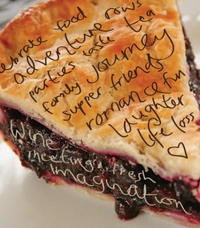 celebrate food
adventure rows
parties cake tea
family journey
supper friends
romance fun
laughter
life loss
wine
meetings fresh
imagination